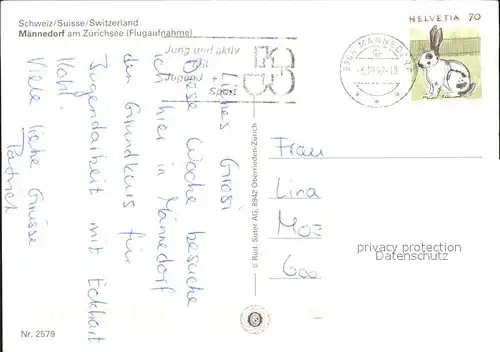 Schweiz/Suisse/Switzerland
Männedorf am Zürichsee (Flugaufnahme)
Jung und aktiv
mit
Jugend +
Sport
8708 MÄNNEDORF
HELVETIA 70
Liebes Grosi
Diese Woche besuche
ich hier in Männedorf
den Grundkurs für
Jugendarbeit mit Eckhart
Kohl.
Viele liebe Grüsse
Patrick
© Rud. Suter AG, 8942 Oberrieden-Zürich
Frau
Lina
privacy protection
www.oldthing.com
Nr. 2579